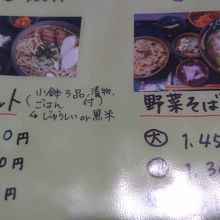 ット(小鉢3品、漬物、
ごはん付)
↳じゅうしぃor黒米
0円
0円
円
野菜そば
大 1.45
1.3